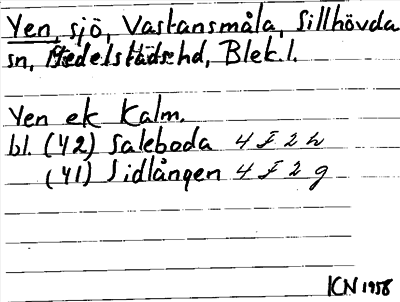 Yen, sjö, Västansmåla, Sillhövda
sn, Medelstads hd, Blek.l.
Yen ek Kalm.
bl. (42) Saleboda 4 F 2 h
(41) Sidlången 4 F 2 g
KN 1958